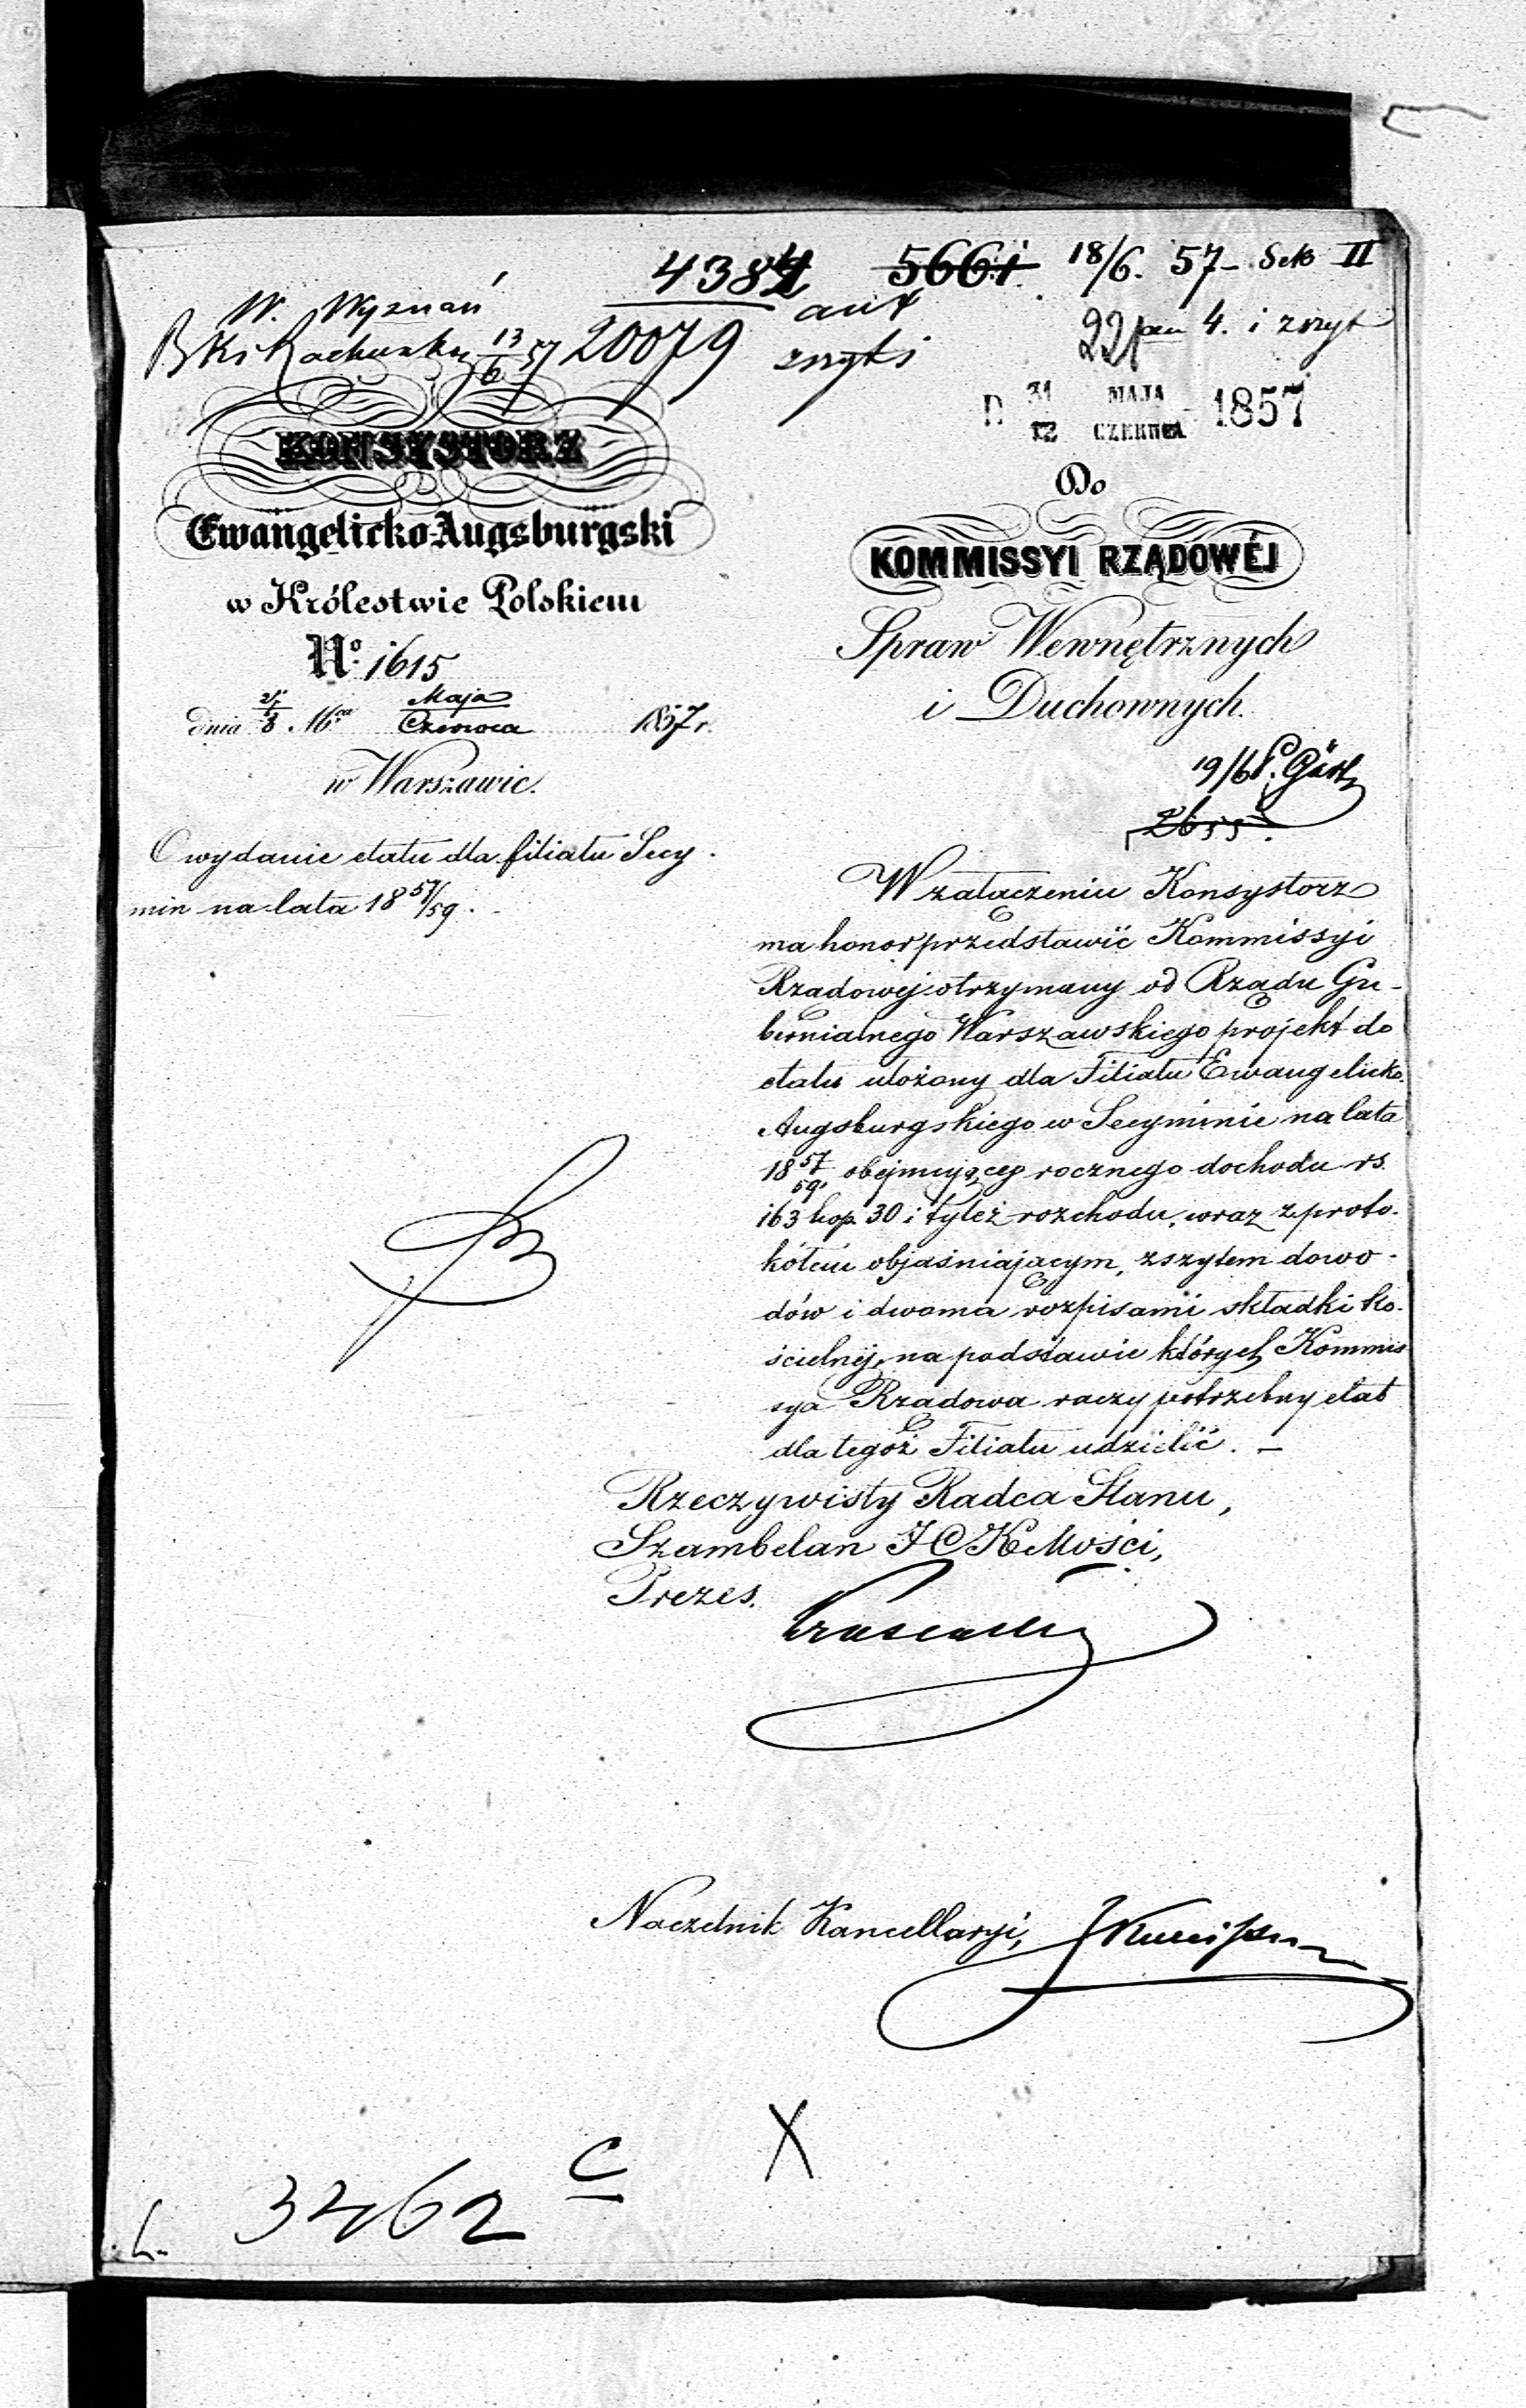 4384 5661 18/6. 57 – Sek II
W. Wyznań
20079
4. i zszyt
D 31 MAJA 1857
12 CZERWCA
KONSYSTORZ
Ewangelicko-Augsburgski
w Królestwie Polskiem
No. 1615
dnia Maja
Czerwca 1857 r.
w Warszawie.
O wydanie etatu dla filiału Secy-
min na lata 18 57/59.
Do
KOMMISSYI RZĄDOWÉJ
Spraw Wewnętrznych
i Duchownych.
19/6
W załączeniu Konsystorz
ma honor przedstawić Kommissyi
Rządowej otrzymany od Rządu Gu-
bernialnego Warszawskiego projekt do
etatu ułożony dla Filiału Ewangelicko-
Augsburgskiego w Secyminie na lata
18 57/59, obejmujący rocznego dochodu rs.
163 kop. 30 i tyleż rozchodu, wraz z proto-
kółem objaśniającym, zszytem dowo-
dów i dwoma rozpisami składki ko-
ścielnéj, na podstawie których Kommis
sya Rządowa raczy potrzebny etat
dla tegoż Filiału udzielić. –
Rzeczywisty Radca Stanu,
Szambelan JCK Mości,
Prezes.
Naczelnik Kancellaryi,
X
C
3462